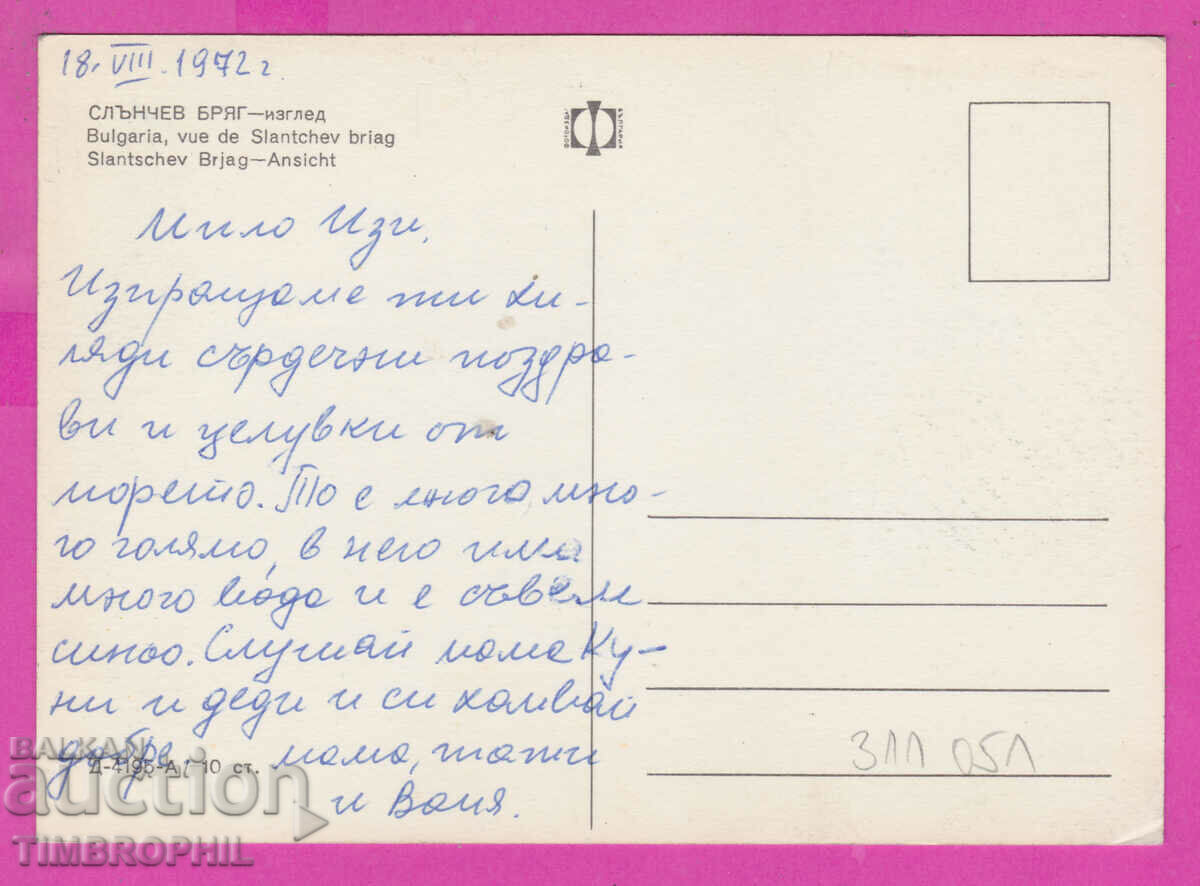 18. VIII. 1972 г.
СЛЪНЧЕВ БРЯГ—изглед
Bulgaria, vue de Slantchev briag
Slantschev Brjag—Ansicht
ФОТОИЗДАТ
БЪЛГАРИЯ
Мило Изи,
Изпращаме ти хи-
ляди сърдечни поздра-
ви и целувки от
морето. То е много мно-
го голямо, в него има
много вода и е съвсем
синьо. Слушай мама Ку-
ни и деди и си хапвай
добре. мама, тати
и Ваня.
Д-4195-А/ 10 ст.
311 051
BALKAN
auction
TIMBROPHIL